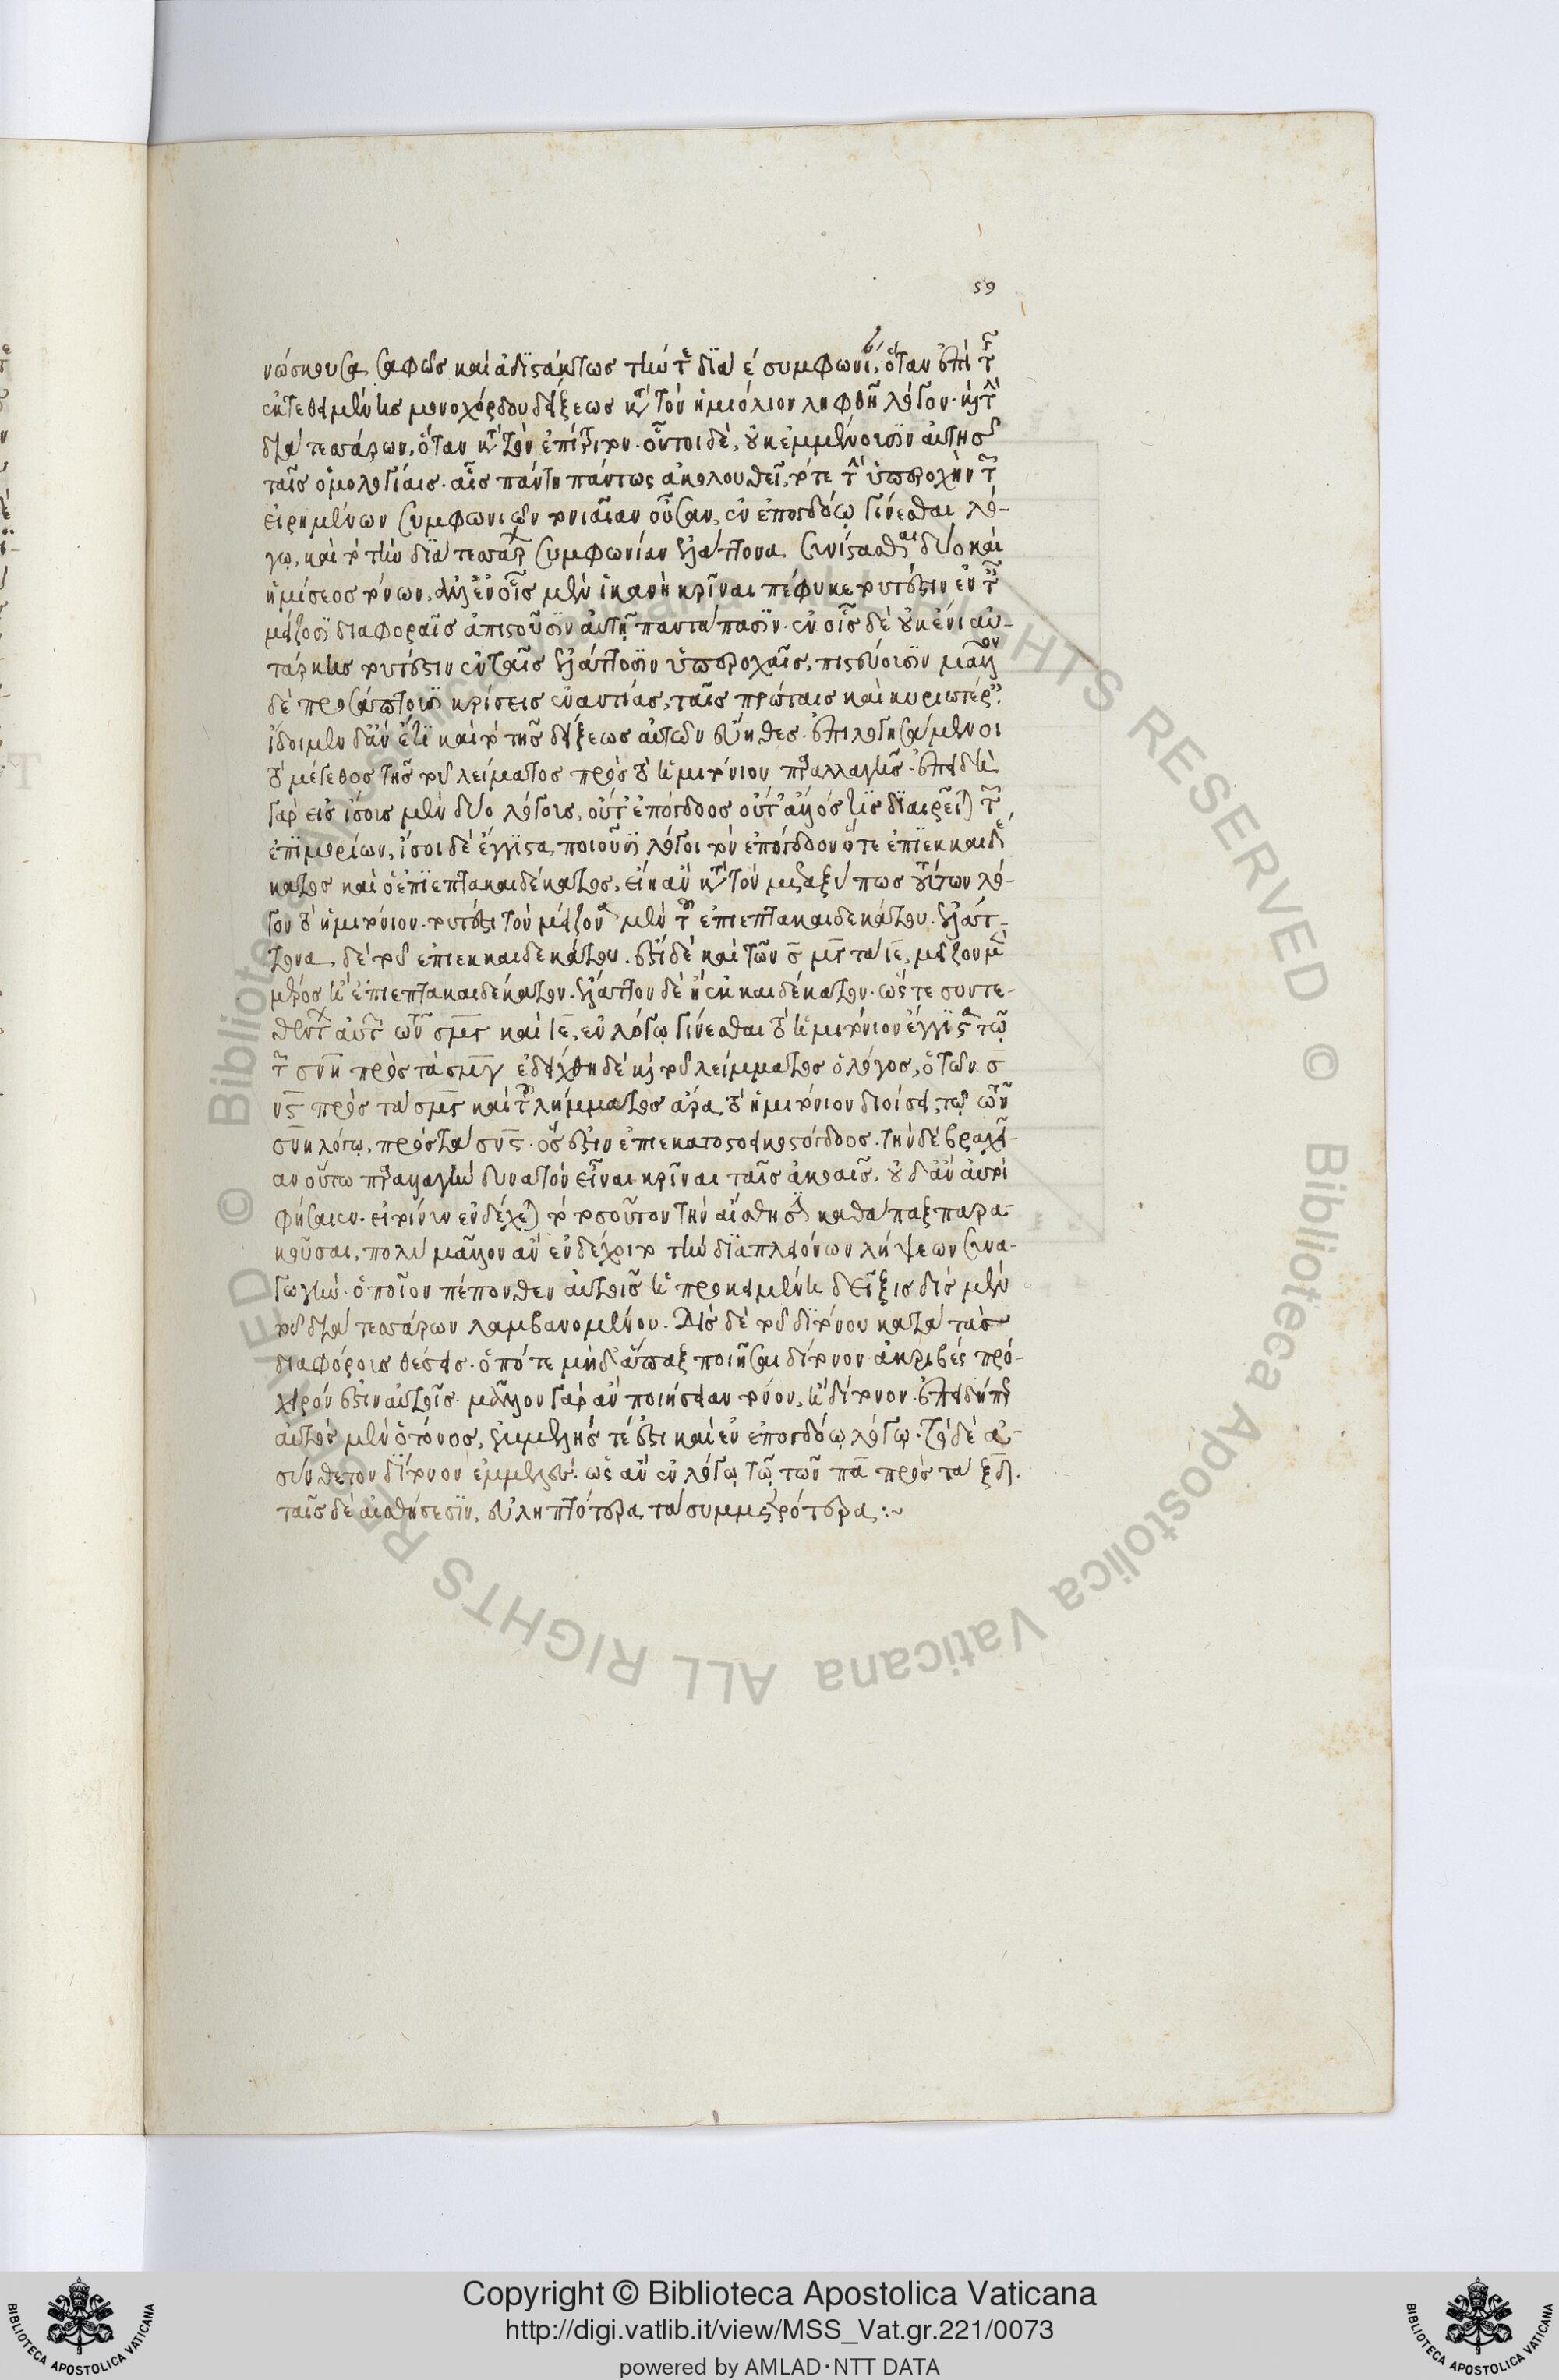 59
νώσκουσα σαφῶς καὶ ἀδιστάκτως τὴν τε διὰ ε συμφωνίαν, ὅταν ἐπὶ τῆς
ἐκτεθειμένης μονοχόρδου δείξεως κατὰ τὸν ἡμιόλιον ληφθῇ λόγον· καὶ τὴν
διὰ τεσσάρων, ὅταν κατὰ τὸν ἐπίτριτον. οὗτοι δὲ, οὐκ ἐμμένουσιν αὐτῆς
ταῖς ὁμολογίαις. αἷς πάντη πάντως ἀκολουθεῖ, τό τε τὴν ὑπεροχὴν τῶν
εἰρημένων συμφωνιῶν τονιαίαν οὖσαν, ἐν ἐπογδόῳ γίνεσθαι λό-
γῳ, καὶ τὸ τὴν διὰ τεσσάρων συμφωνίαν ἐλάττονα συνίστασθαι δύο καὶ
ἡμίσεος τόνων. ἀλλ' ἐν οἷς μὲν ἱκανὴ κρῖναι πέφυκε τουτέστιν ἐν ταῖς
μείζοσι διαφοραῖς ἀπιστοῦσιν αὐτῇ παντάπασιν. ἐν οἷς δὲ οὐκ ἔνι αὐ-
τάρκης τουτέστιν ἐν ταῖς ἐλάττοσιν ὑπεροχαῖς, πιστεύουσιν μᾶλλον
δὲ προσάπτουσι κρίσεις ἐναντίας, ταῖς πρώταις καὶ κυριωτέραις.
ἴδοιμεν δ' ἂν ἔτι καὶ τὸ τῆς δείξεως αὐτῶν εὔηθες. ἐπιλογησάμενοι
τὸ μέγεθος τῆς τοῦ λείματος πρὸς τὸ ἡμιτόνιον παραλλαγῆς. ἐπειδὴ
γὰρ εἰς ἴσους μὲν δύο λόγους, οὔτ' ἐπόγδοος οὔτ' ἄλλός τις διαιρεῖται τῶν
ἐπιμορίων, ἴσοι δὲ ἔγγιστα ποιοῦσι λόγοι τὸν ἐπόγδοον ὅ τε ἐπιεκκαιδέ
κατος καὶ ὁ ἐπιεπτακαιδέκατος, εἴη ἂν κατὰ τὸν μεταξύ πως τούτων λό-
γον τὸ ἡμιτόνιον. τουτέστι τὸν μείζονα μὲν τοῦ ἐπιεπτακαιδεκάτου. ἐλάτ-
τονα δὲ τοῦ ἐπιεκκαιδεκάτου. ἔστι δὲ καὶ τῶν σ̅ μ̅ϛ̅ τα ιε̅, μεῖζον μὲν
μέρος ἢ ἐπιεπτακαιδέκατον. ἔλαττον δὲ ἢ ἐκκαιδέκατον. ὥστε συντε-
θέντων αὐτῶν τῶν σ̅μ̅ϛ̅ καὶ ιε̅, ἐν λόγῳ γίνεσθαι τὸ ἡμιτόνιον ἔγγιστα τῷ
τῶν σ̅ν̅η̅ πρὸς τὰ σ̅μ̅γ̅ ἐδείχθη δὲ καὶ τοῦ λείμματος ὁ λόγος, ὁ τῶν σ̅
ν̅ϛ̅ πρὸς τὰ σ̅μ̅ϛ̅ καὶ τοῦ λήμματος ἄρα τὸ ἡμιτόνιον διοίσει, τῷ τῶν
σ̅ν̅η̅ λόγῳ, πρὸς τὰ σ̅ν̅ϛ̅. ὅς ἐστιν ἐπιεκατοστεικοστόγδοος. τὴν δὲ βραχεῖ-
αν οὕτω παραλλαγὴν δυνατὸν εἶναι κρῖναι ταῖς ἀκοαῖς. οὐδ' ἂν αὐτοὶ
φήσαιεν. εἰ τοίνυν ἐνδέχεται τὸ τοσοῦτον τὴν αἴσθησιν καθάπαξ παρα-
κοῦσαι, πολὺ μᾶλλον ἂν ἐνδέχοιτο τὴν διὰ πλειόνων λήψεων συνα-
γωγήν. ὁποῖον πέπονθεν αὐτοῖς ἡ προκειμένη δεῖξις δὶς μὲν
τοῦ διὰ τεσσάρων λαμβανομένου. Δὶς δὲ τοῦ διτόνου κατὰ τὰς
διαφόρους θέσεις. ὁπότε μηδ' ἅπαξ ποιῆσαι δίτονον ἀκριβὲς πρό-
χειρόν ἐστιν αὐτοῖς. μᾶλλον γὰρ ἂν ποιήσειαν τόνον, ἢ δίτονον. ἐπειδήπερ
αὐτὸς μὲν ὁ τόνος, ἐμμελής τέ ἐστι καὶ ἐν ἐπογδόῳ λόγῳ. τὸ δὲ ἀ-
σύνθετον δίτονον ἐμμελές. ὡς ἂν ἐν λόγῳ τῷ τῶν π̅α̅ πρὸς τὰ ξ̅δ̅.
ταῖς δὲ αἰσθήσεσιν, εὐληπτότερα τὰ συμμετρότερα :~
Copyright © Biblioteca Apostolica Vaticana
http://digi.vatlib.it/view/MSS_Vat.gr.221/0073
powered by AMLAD·NTT DATA
BIBLIOTECA APOSTOLICA VATICANA
BIBLIOTECA APOSTOLICA VATICANA
© Biblioteca Apostolica Vaticana ALL RIGHTS RESERVED
© Biblioteca Apostolica Vaticana ALL RIGHTS RESERVED